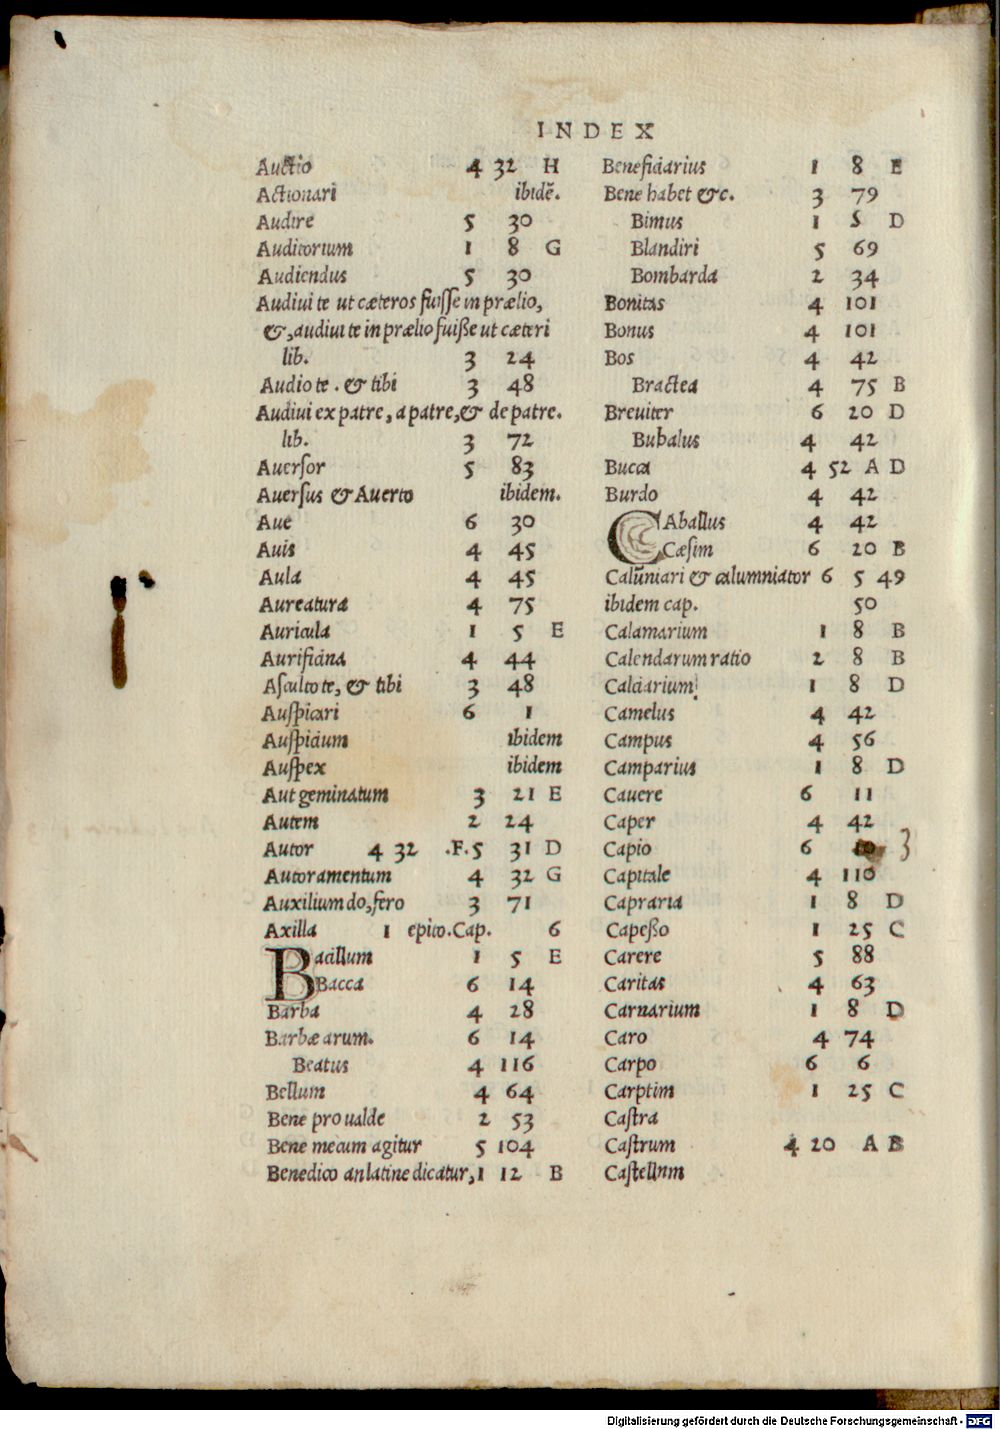 INDEX
Auctio 4 32 H
Actionari ibidē.
Audire 5 30
Auditorium 1 8 G
Audiendus 5 30
Audiui te ut cæteros fuisse in prælio,
&, audiui te in prælio fuiße ut cæteri
lib. 3 24
Audio te . & tibi 3 48
Audiui ex patre, a patre, & de patre.
lib. 3 72
Auersor 5 83
Auersus & Auerto ibidem.
Aue 6 30
Auis 4 45
Aula 4 45
Aureatura 4 75
Auricula 1 5 E
Aurificina 4 44
Asculto te, & tibi 3 48
Auspicari 6 1
Auspicium ibidem
Auspex ibidem
Aut geminatum 3 21 E
Autem 2 24
Autor 4 32 .F. 5 31 D
Autoramentum 4 32 G
Auxilium do, fero 3 71
Axilla 1 epito. Cap. 6
Bacillum 1 5 E
Bacca 6 14
Barba 4 28
Barbæ arum. 6 14
Beatus 4 116
Bellum 4 64
Bene pro ualde 2 53
Bene mecum agitur 5 104
Benedico an latine dicatur, 1 12 B
Beneficiarius 1 8 E
Bene habet &c. 3 79
Bimus 1 5 D
Blandiri 5 69
Bombarda 2 34
Bonitas 4 101
Bonus 4 101
Bos 4 42
Bractea 4 75 B
Breuiter 6 20 D
Bubalus 4 42
Bucca 4 52 A D
Burdo 4 42
CAballus 4 42
Cæsim 6 20 B
Calūniari & calumniator 6 5 49
ibidem cap. 50
Calamarium 1 8 B
Calendarum ratio 2 8 B
Calciarium 1 8 D
Camelus 4 42
Campus 4 56
Camparius 1 8 D
Cauere 6 11
Caper 4 42
Capio 6 10 3
Capitale 4 110
Capraria 1 8 D
Capeßo 1 25 C
Carere 5 88
Caritas 4 63
Carnarium 1 8 D
Caro 4 74
Carpo 6 6
Carptim 1 25 C
Castra
Castrum 4 20 A B
Castellnm
Digitalisierung gefördert durch die Deutsche Forschungsgemeinschaft - DFG